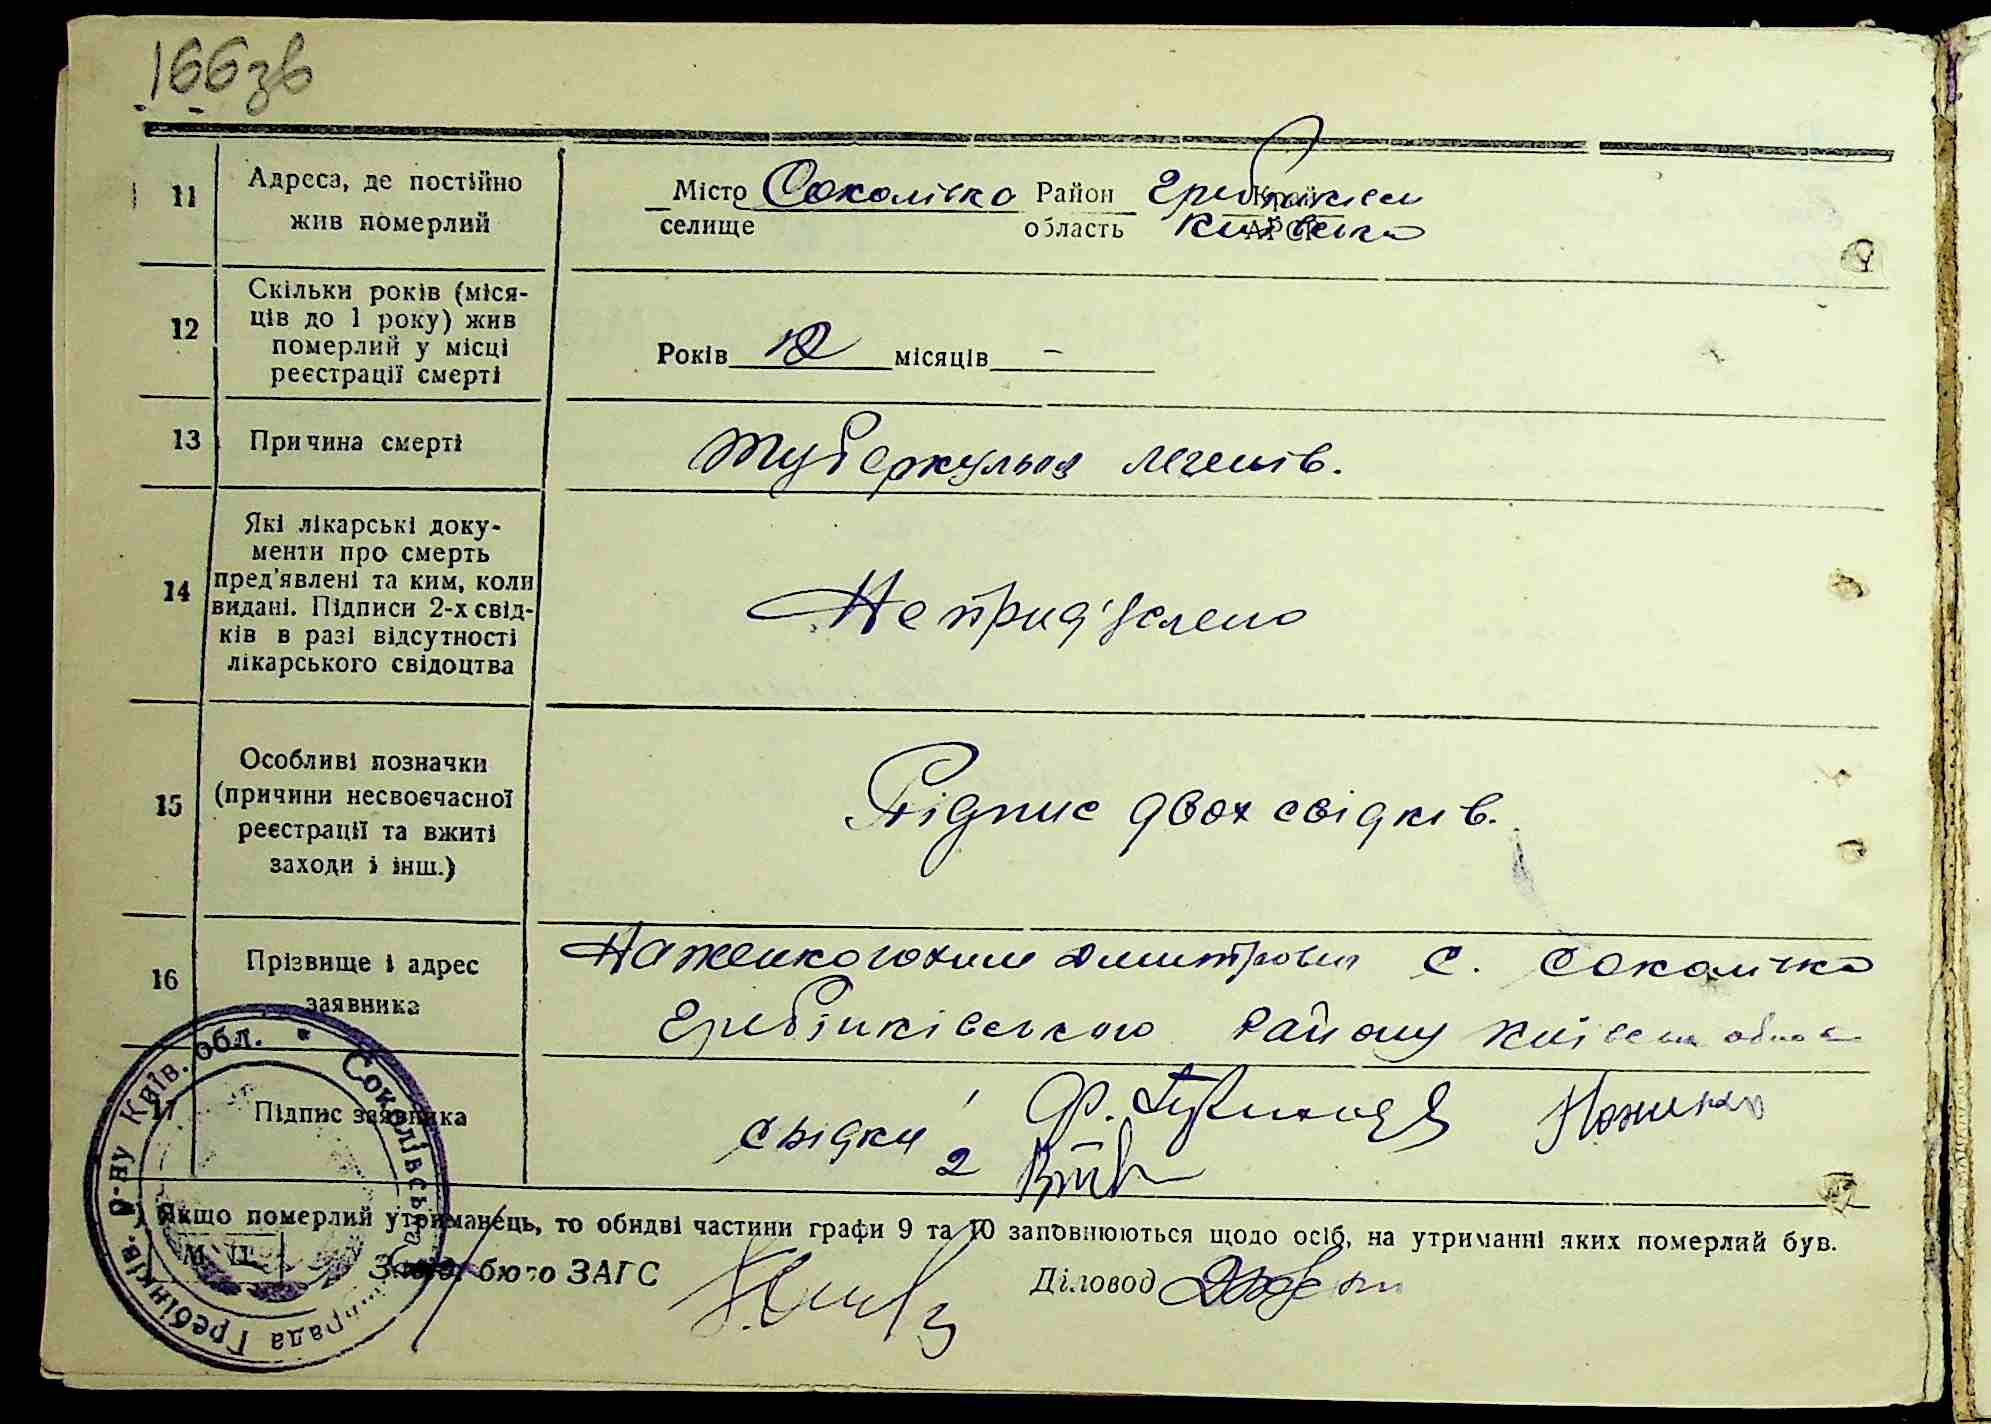 166зв
11 Адреса, де постійно жив померлий
Місто селище Соколівка Район область Гребінків Київська Край АРСР
12 Скільки років (міся-
ців до 1 року) жив
померлий у місці
реєстрації смерті
Років місяців –
13 Причина смерті
туберкульоз легенів.
14 Які лікарські доку-
менти про смерть
пред'явлені та ким, коли
видані. Підписи 2-х свід-
ків в разі відсутності
лікарського свідоцтва
Не прид'явлено
15 Особливі позначки
(причини несвоєчасної
реєстрації та вжиті
заходи і інш.)
Підпис двох свідків.
16 Прізвище і адрес
заявника
Дмитрович с. Соколівка
Гребінківського району Київськ
17 Підпис заявника
свідки 1 Ф.
2
Якщо померлий утриманець, то обидві частини графи 9 та 10 заповнюються щодо осіб, на утриманні яких померлий був.
М. П.
Завід. бюто ЗАГС
Діловод
Соколівська сільрада Гребінків. р-ну Київ. обл.